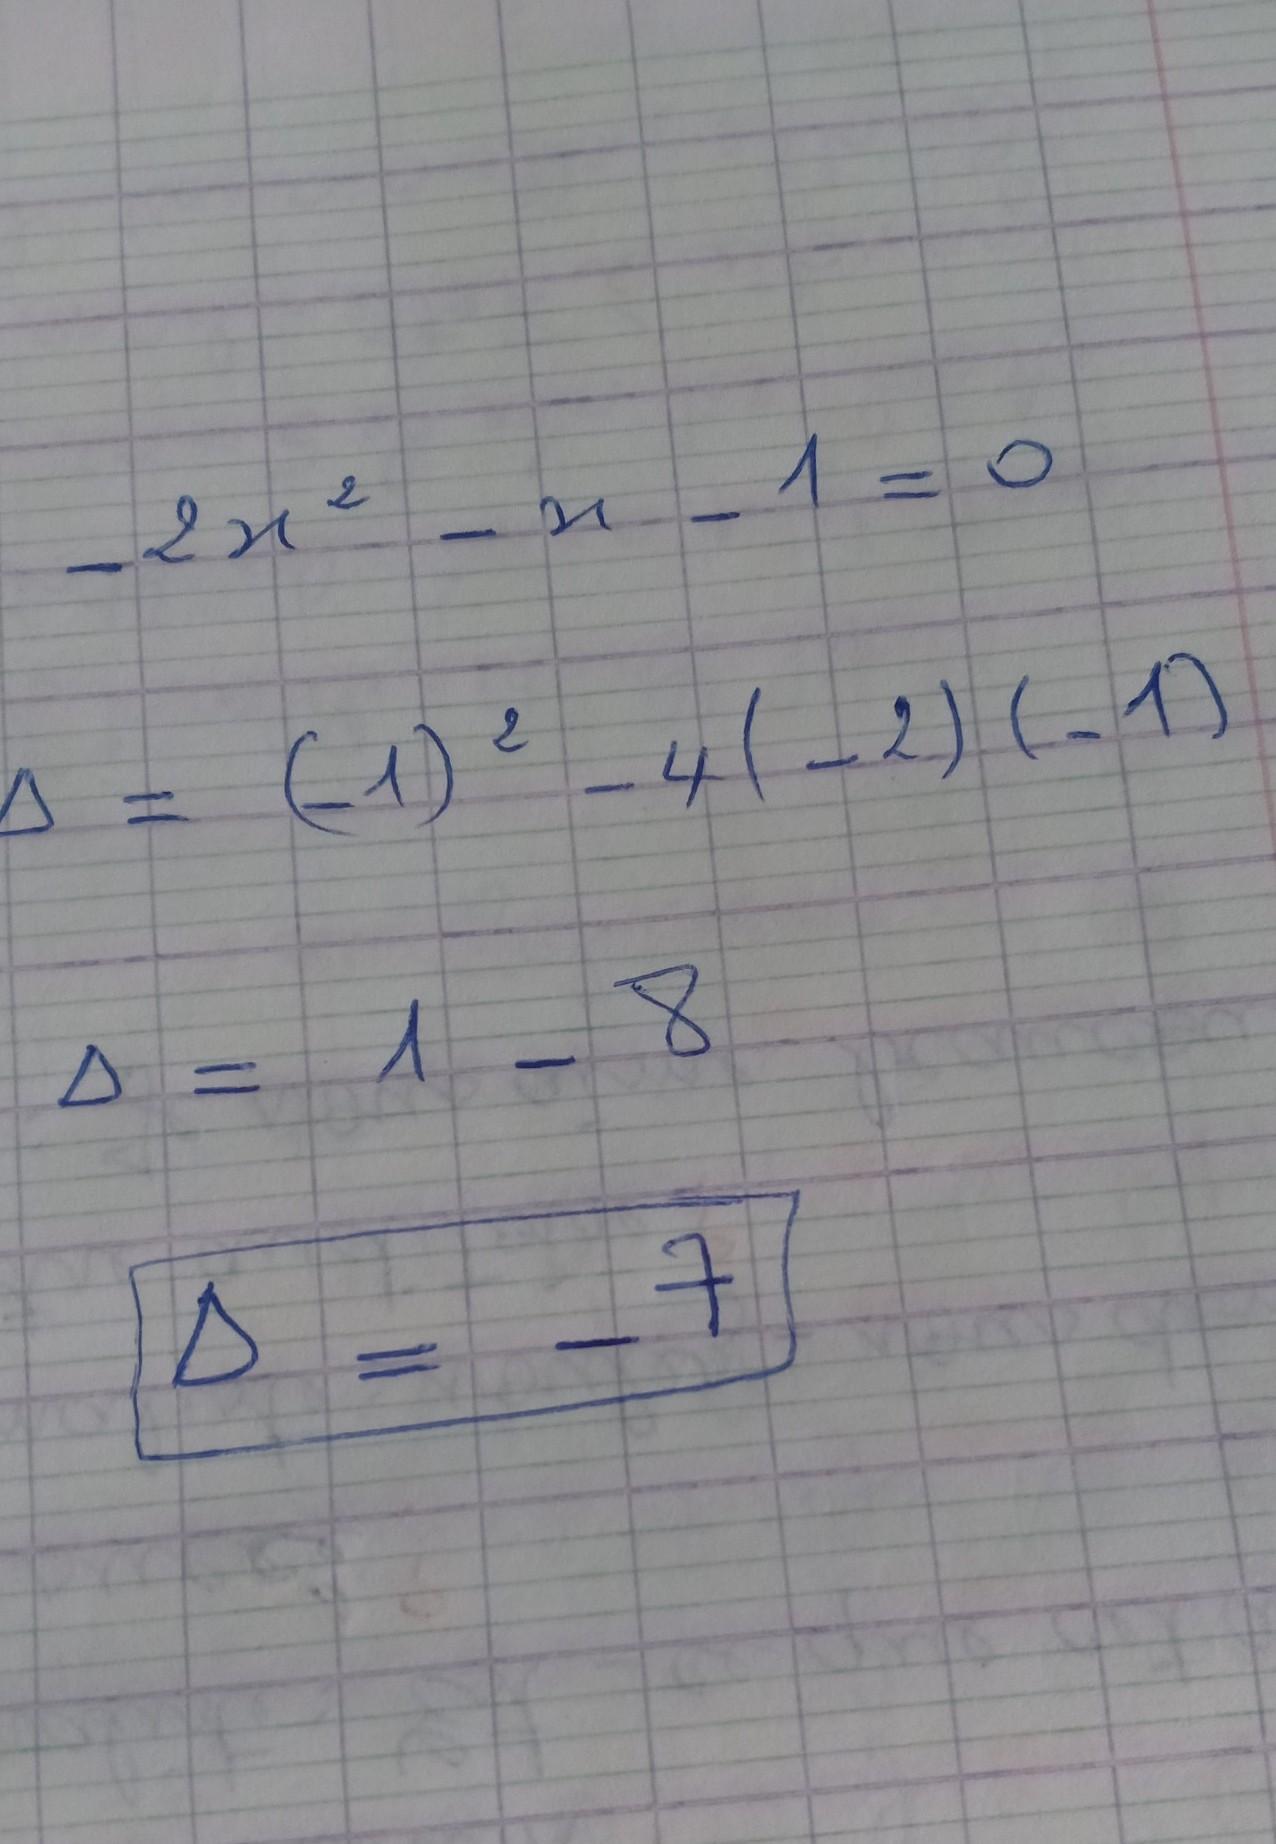 -2x² - x - 1 = 0
Δ = (-1)² - 4(-2)(-1)
Δ = 1 - 8
Δ = -7